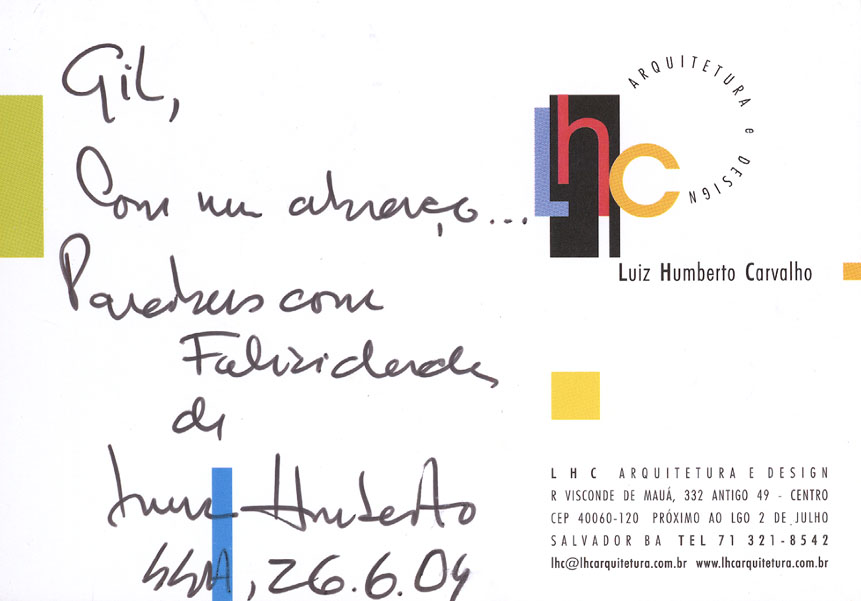 Gil,
Com um abraço...
Parabéns com
Felicidades
de
Luiz Humberto
SSA, 26.6.04
lhc
ARQUITETURA e DESIGN
Luiz Humberto Carvalho
LHC ARQUITETURA E DESIGN
R VISCONDE DE MAUÁ, 332 ANTIGO 49 - CENTRO
CEP 40060-120 PRÓXIMO AO LGO 2 DE JULHO
SALVADOR BA TEL 71 321-8542
lhc@lhcarquitetura.com.br www.lhcarquitetura.com.br